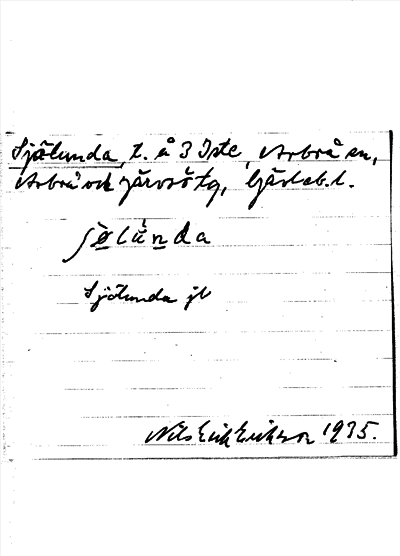 Sjölunda, t. å 3 Iste, Arbrå sn,
Arbrå och Järvsö tg, Gävleb. l.
ʃö̀lúnda
Sjölunda jb
Nils Erik Erikson 1935.